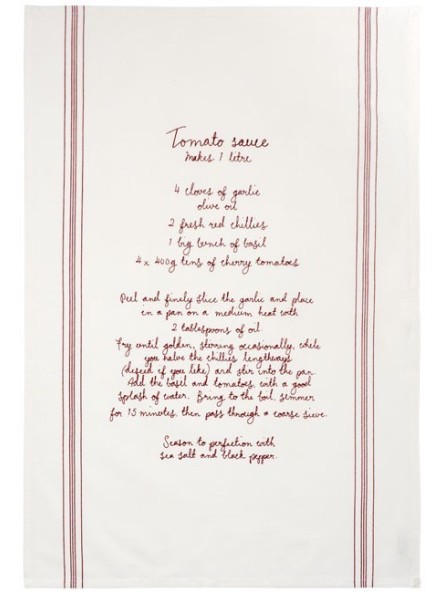 Tomato sauce
makes 1 litre
4 cloves of garlic
olive oil
2 fresh red chillies
1 big bunch of basil
4 x 400g tins of cherry tomatoes
Peel and finely slice the garlic and place
in a pan on a medium heat with
2 tablespoons of oil.
Fry until golden, stirring occasionally, while
you halve the chillies lengthways
(deseed if you like) and stir into the pan.
Add the basil and tomatoes, with a good
splash of water. Bring to the boil, simmer
for 15 minutes, then pass through a coarse sieve.
Season to perfection with
sea salt and black pepper.